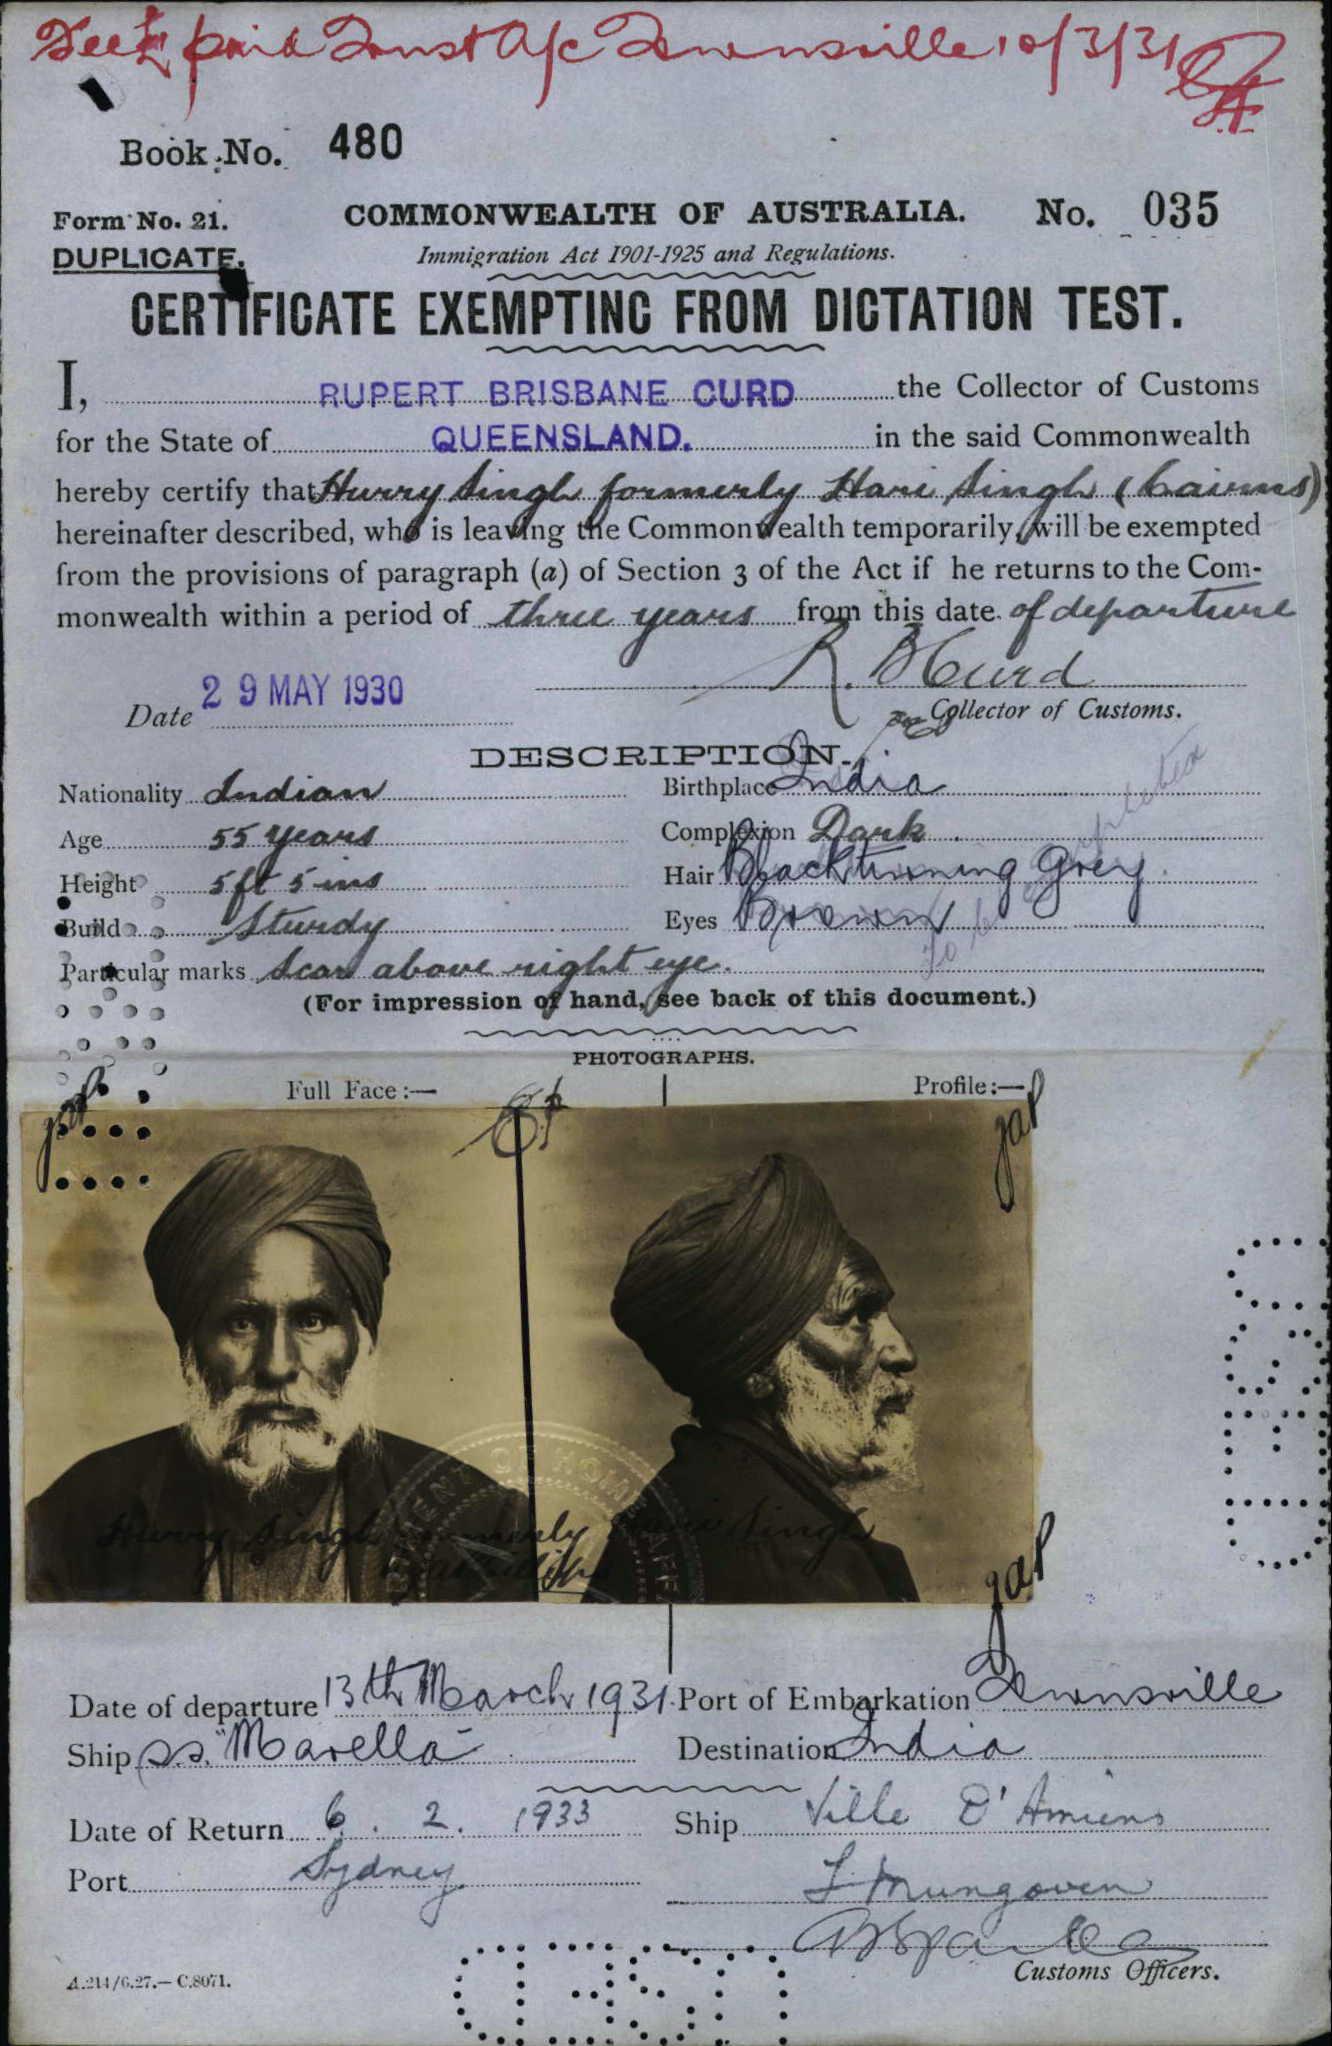 Fee £1 paid Trust A/c Townsville 10/3/31
Book No. 480
Form No. 21. COMMONWEALTH OF AUSTRALIA. No. 035
DUPLICATE. Immigration Act 1901-1925 and Regulations.
CERTIFICATE EXEMPTING FROM DICTATION TEST.
I, RUPERT BRISBANE CURD the Collector of Customs
for the State of QUEENSLAND. in the said Commonwealth
hereby certify that Hurry Singh formerly Hari Singh (Cairns)
hereinafter described, who is leaving the Commonwealth temporarily, will be exempted
from the provisions of paragraph (a) of Section 3 of the Act if he returns to the Com-
monwealth within a period of three years from this date of departure
R. B Curd
Date 29 MAY 1930
Collector of Customs.
DESCRIPTION.
Nationality Indian Birthplace India
Age 55 years Complexion Dark
Height 5 ft 5 ins Hair Black turning Grey.
Build Sturdy Eyes Brown
Particular marks Scar above right eye.
(For impression of hand, see back of this document.)
PHOTOGRAPHS.
Full Face:— Profile:—
Hurry Singh formerly Hari Singh
Date of departure 13th March 1931. Port of Embarkation Townsville
Ship s.s. "Marella" Destination India
Date of Return 6. 2. 1933 Ship Ville D'Amiens
Port Sydney
Customs Officers.
A.214/6.27.—C.8071.